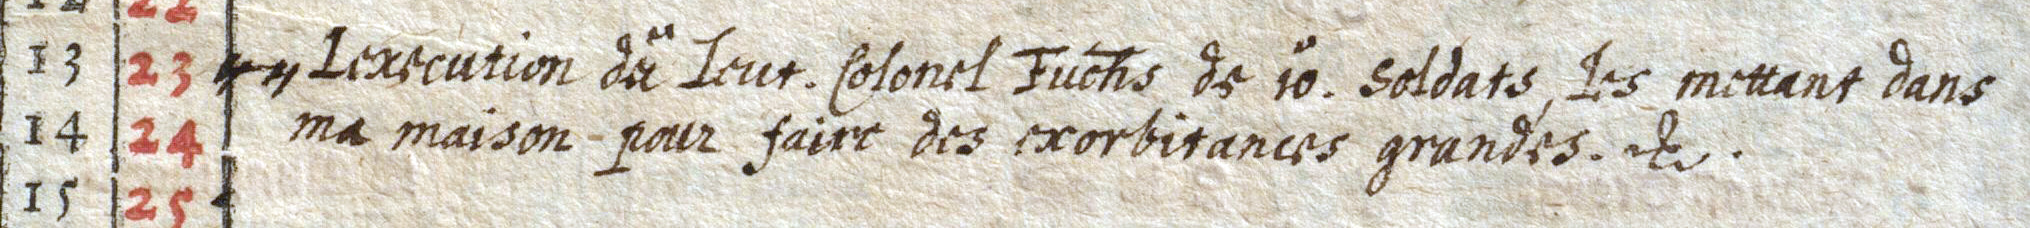 22
13 23 Lexecution du Leut. Colonel Fuchs de 10. soldats, les mettant dans
14 24 ma maison pour faire des exorbitances grandes. &c.
15 25